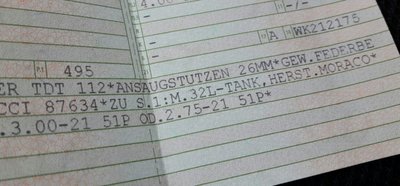 4.00
-/-
-
-
A WK212175
495
ER TDT 112*ANSAUGSTUTZEN 26MM*GEW.FEDERBE
CCI 87634*ZU S.1:M.32L-TANK,HERST.MORACO*
.3.00-21 51P OD.2.75-21 51P*